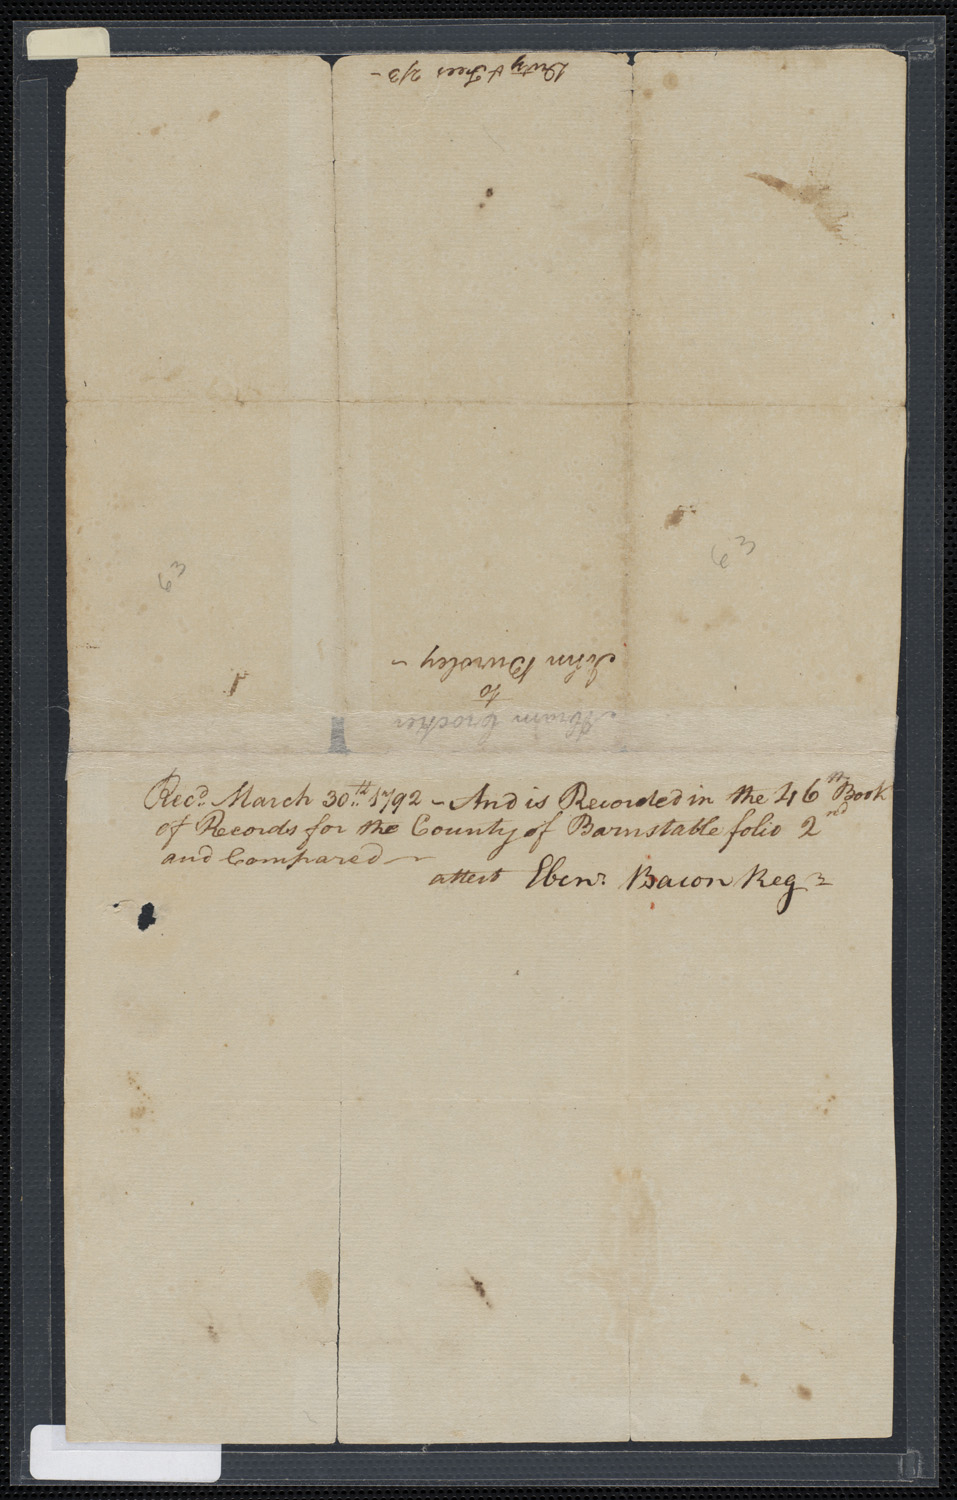 Duty & Fees 2/3 -
63
63
John Bursley ~
to
Abram Crocker
Rec.d March 30.th 1792 - And is Recorded in the 46th Book
of Records for the County of Barnstable folio 2nd
and Compared ~
attest Eben.r Bacon Reg.r